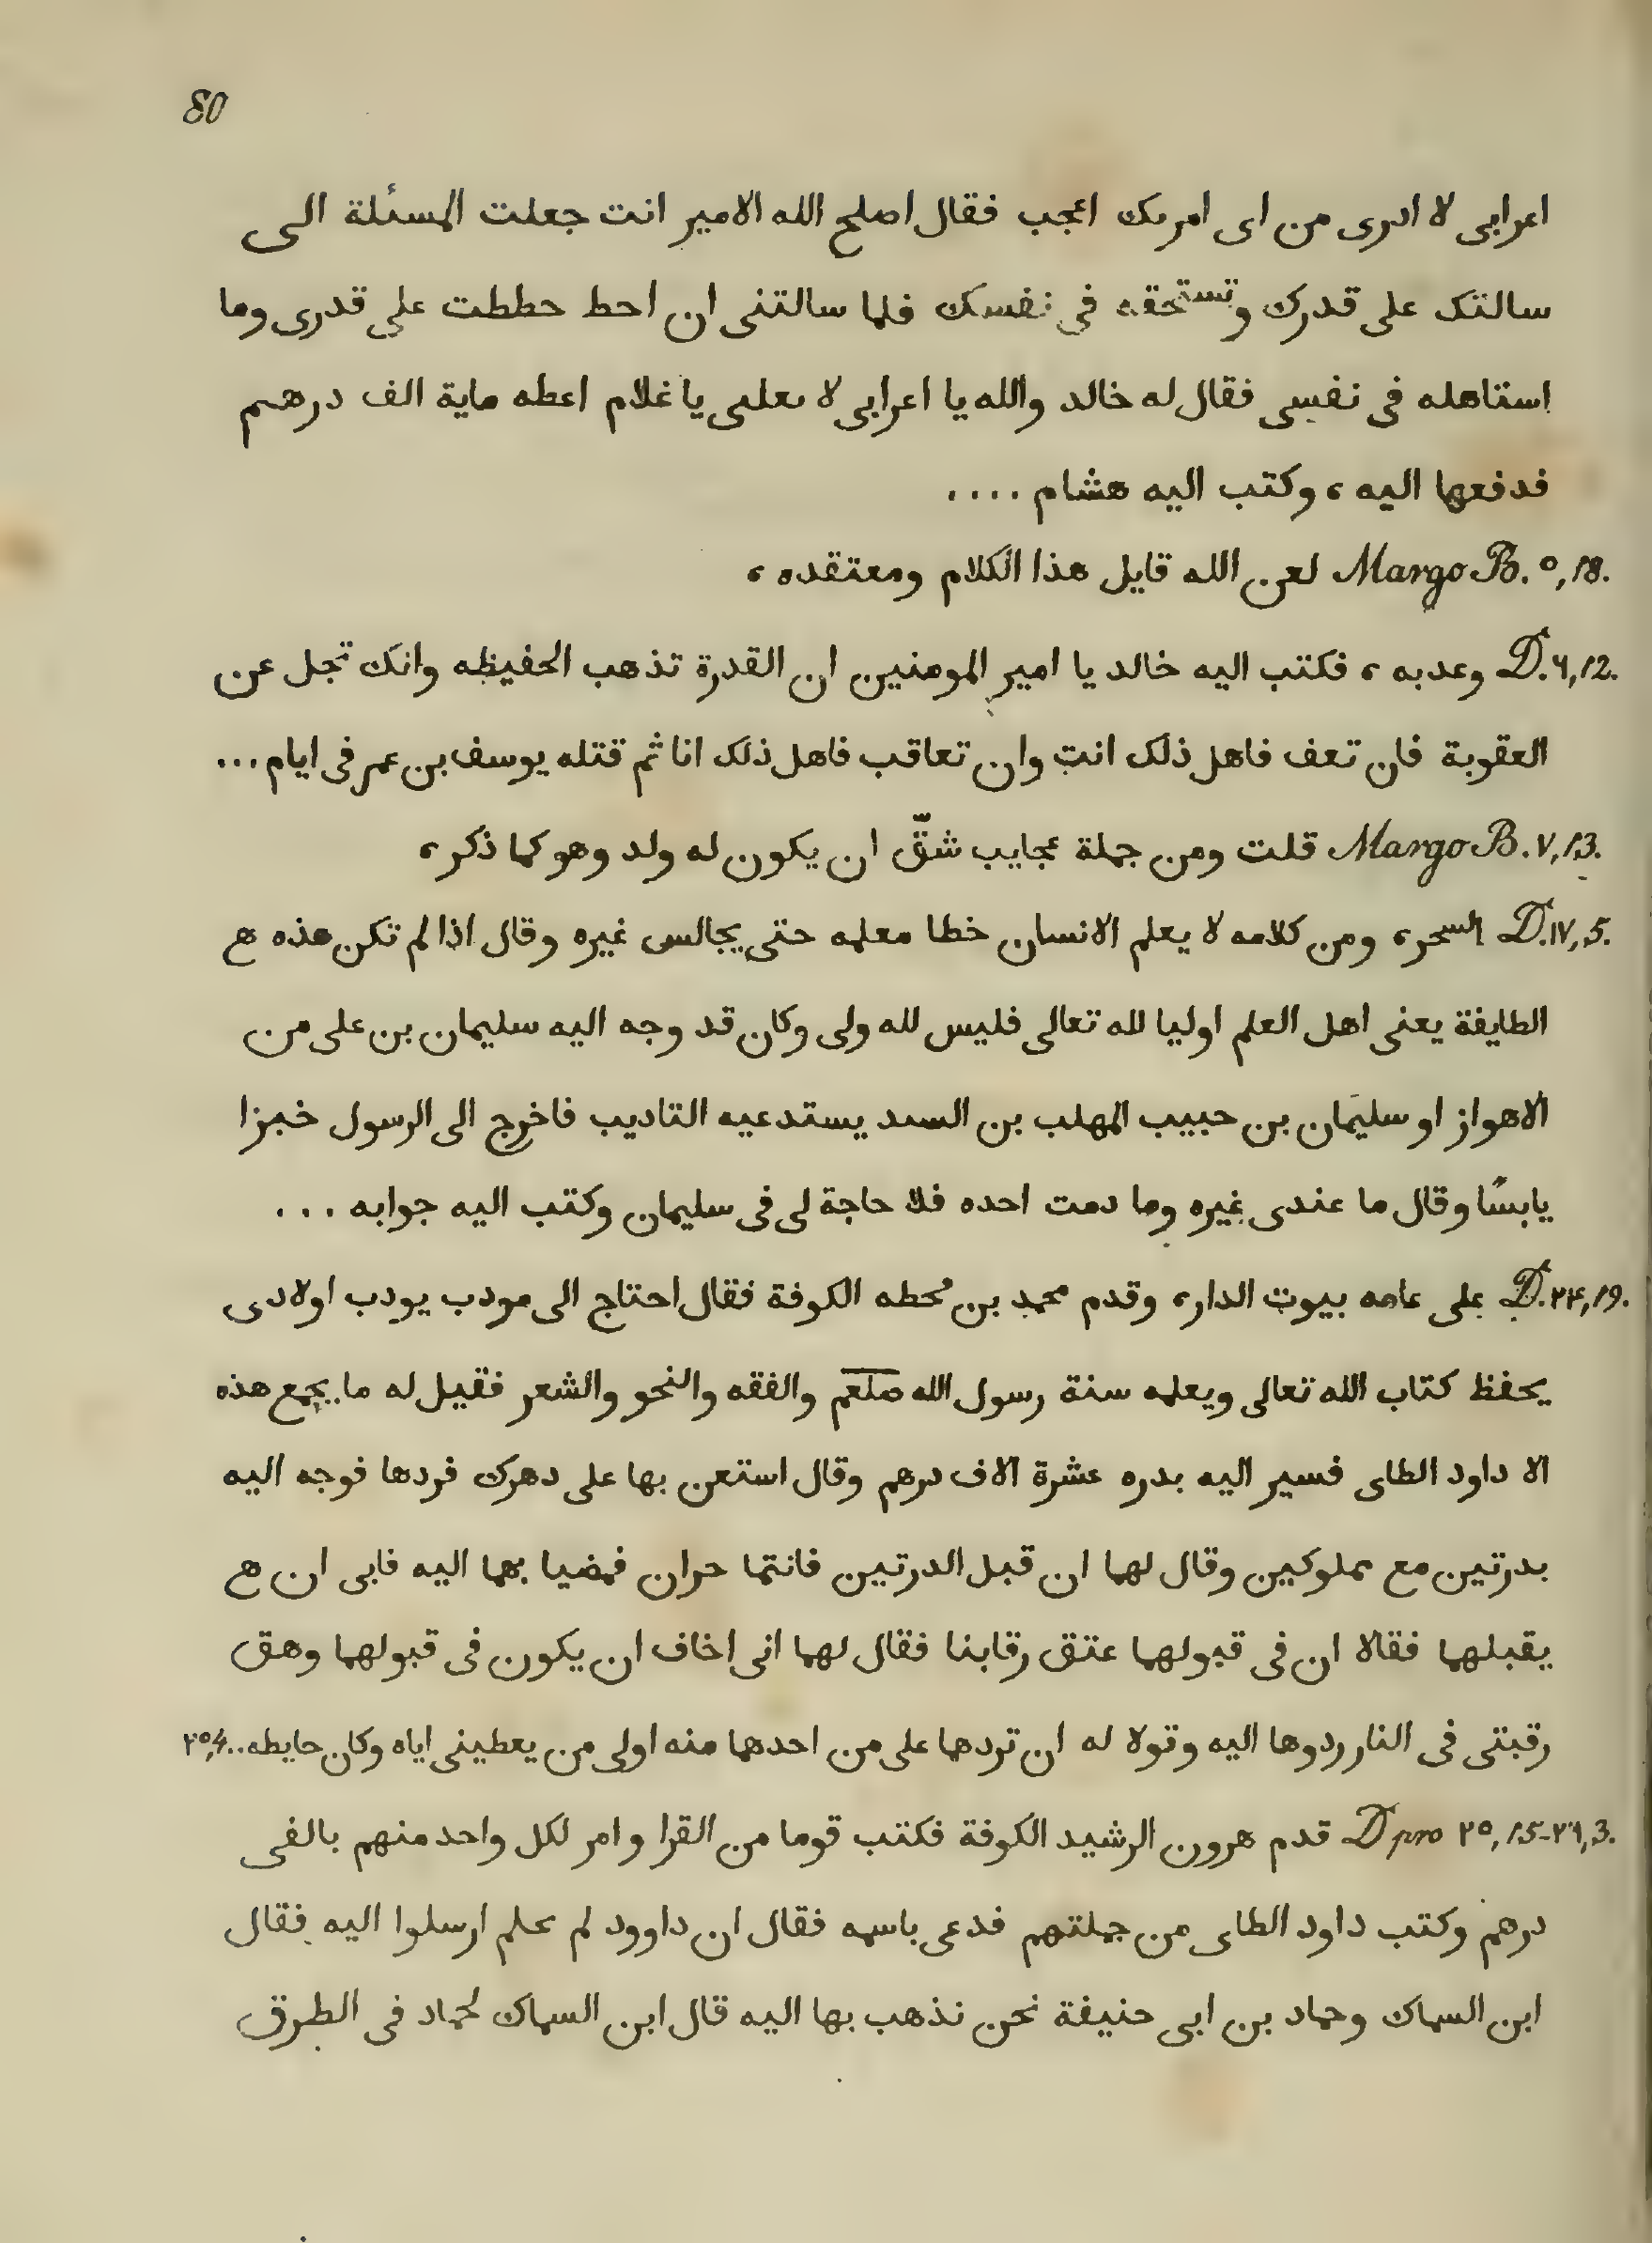 80
اعرابى لا ادرى من اى امريك اعجب فقال اصلح الله الامير انت جعلت المسئلة الى
سالتك على قدرك وتستحقه فى نفسك فلما سالتنى ان احط حططت على قدرى وما
استاهله فى نفسى فقال له خالد والله يا اعرابى لا يا غلام اعطه ماية الف درهم
فدفعها اليه ، وكتب اليه هشام ....
Margo B. ٥,18. لعن الله قايل هذا الكلام ومعتقده ،
D. ٦,12. وعدبه ، فكتب اليه خالد يا امير المومنين ان القدرة تذهب الحفيظه وانك تجل عن
العقوبة فان تعف فاهل ذلك انت وان تعاقب فاهل ذلك انا ثم قتله يوسف بن عمر فى ايام ...
Margo B. ٧,13. قلت ومن جملة عجايب شقّ ان يكون له ولد وهو كما ذكر ،
D. ١٧,5. السحر ، ومن كلامه لا يعلم الانسان خطا معلمه حتى يجالس غيره وقال اذا لم تكن هذه ه
الطايفة يعنى اهل العلم اوليا لله تعالى فليس لله ولى وكان قد وجه اليه سليمان بن على من
الاهواز او سليمان بن حبيب المهلب بن يستدعيه التاديب فاخرج الى الرسول خبزا
يابسًا وقال ما عندى غيره وما دمت احده فلا حاجة لى فى سليمان وكتب اليه جوابه ...
D. ٢٤,19. على عامه بيوت الدار ، وقدم محمد بن محطه الكوفة فقال احتاج الى مودب يودب اولادى
يحفظ كتاب الله تعالى ويعلمه سنة رسول الله صلعم والفقه والنحو والشعر فقيل له ما يجمع هذه
الا داود الطاى فسير اليه بدره عشرة الاف درهم وقال استعن بها على دهرك فردها فوجه اليه
بدرتين مع مملوكين وقال لهما ان قبل الدرتين فانتما حران فمضيا بهما اليه فابى ان ه
يقبلهما فقالا ان فى قبولهما عتق رقابنا فقال لهما انى اخاف ان يكون فى قبولهما وهق
رقبتى فى النار ردوها اليه وقولا له ان تردها على من احدهما منه اولى من يعطينى اياه وكان حايطه .. ٢٥,4
D pro ٢٥,15-٢٦,3. قدم هرون الرشيد الكوفة فكتب قوما من القرا وامر لكل واحد منهم بالفى
درهم وكتب داود الطاى من جملتهم فدعى باسمه فقال ان داوود لم علم ارسلوا اليه فقال
ابن السماك وحماد بن ابى حنيفة نحن نذهب بها اليه قال ابن السماك لحماد فى الطرق